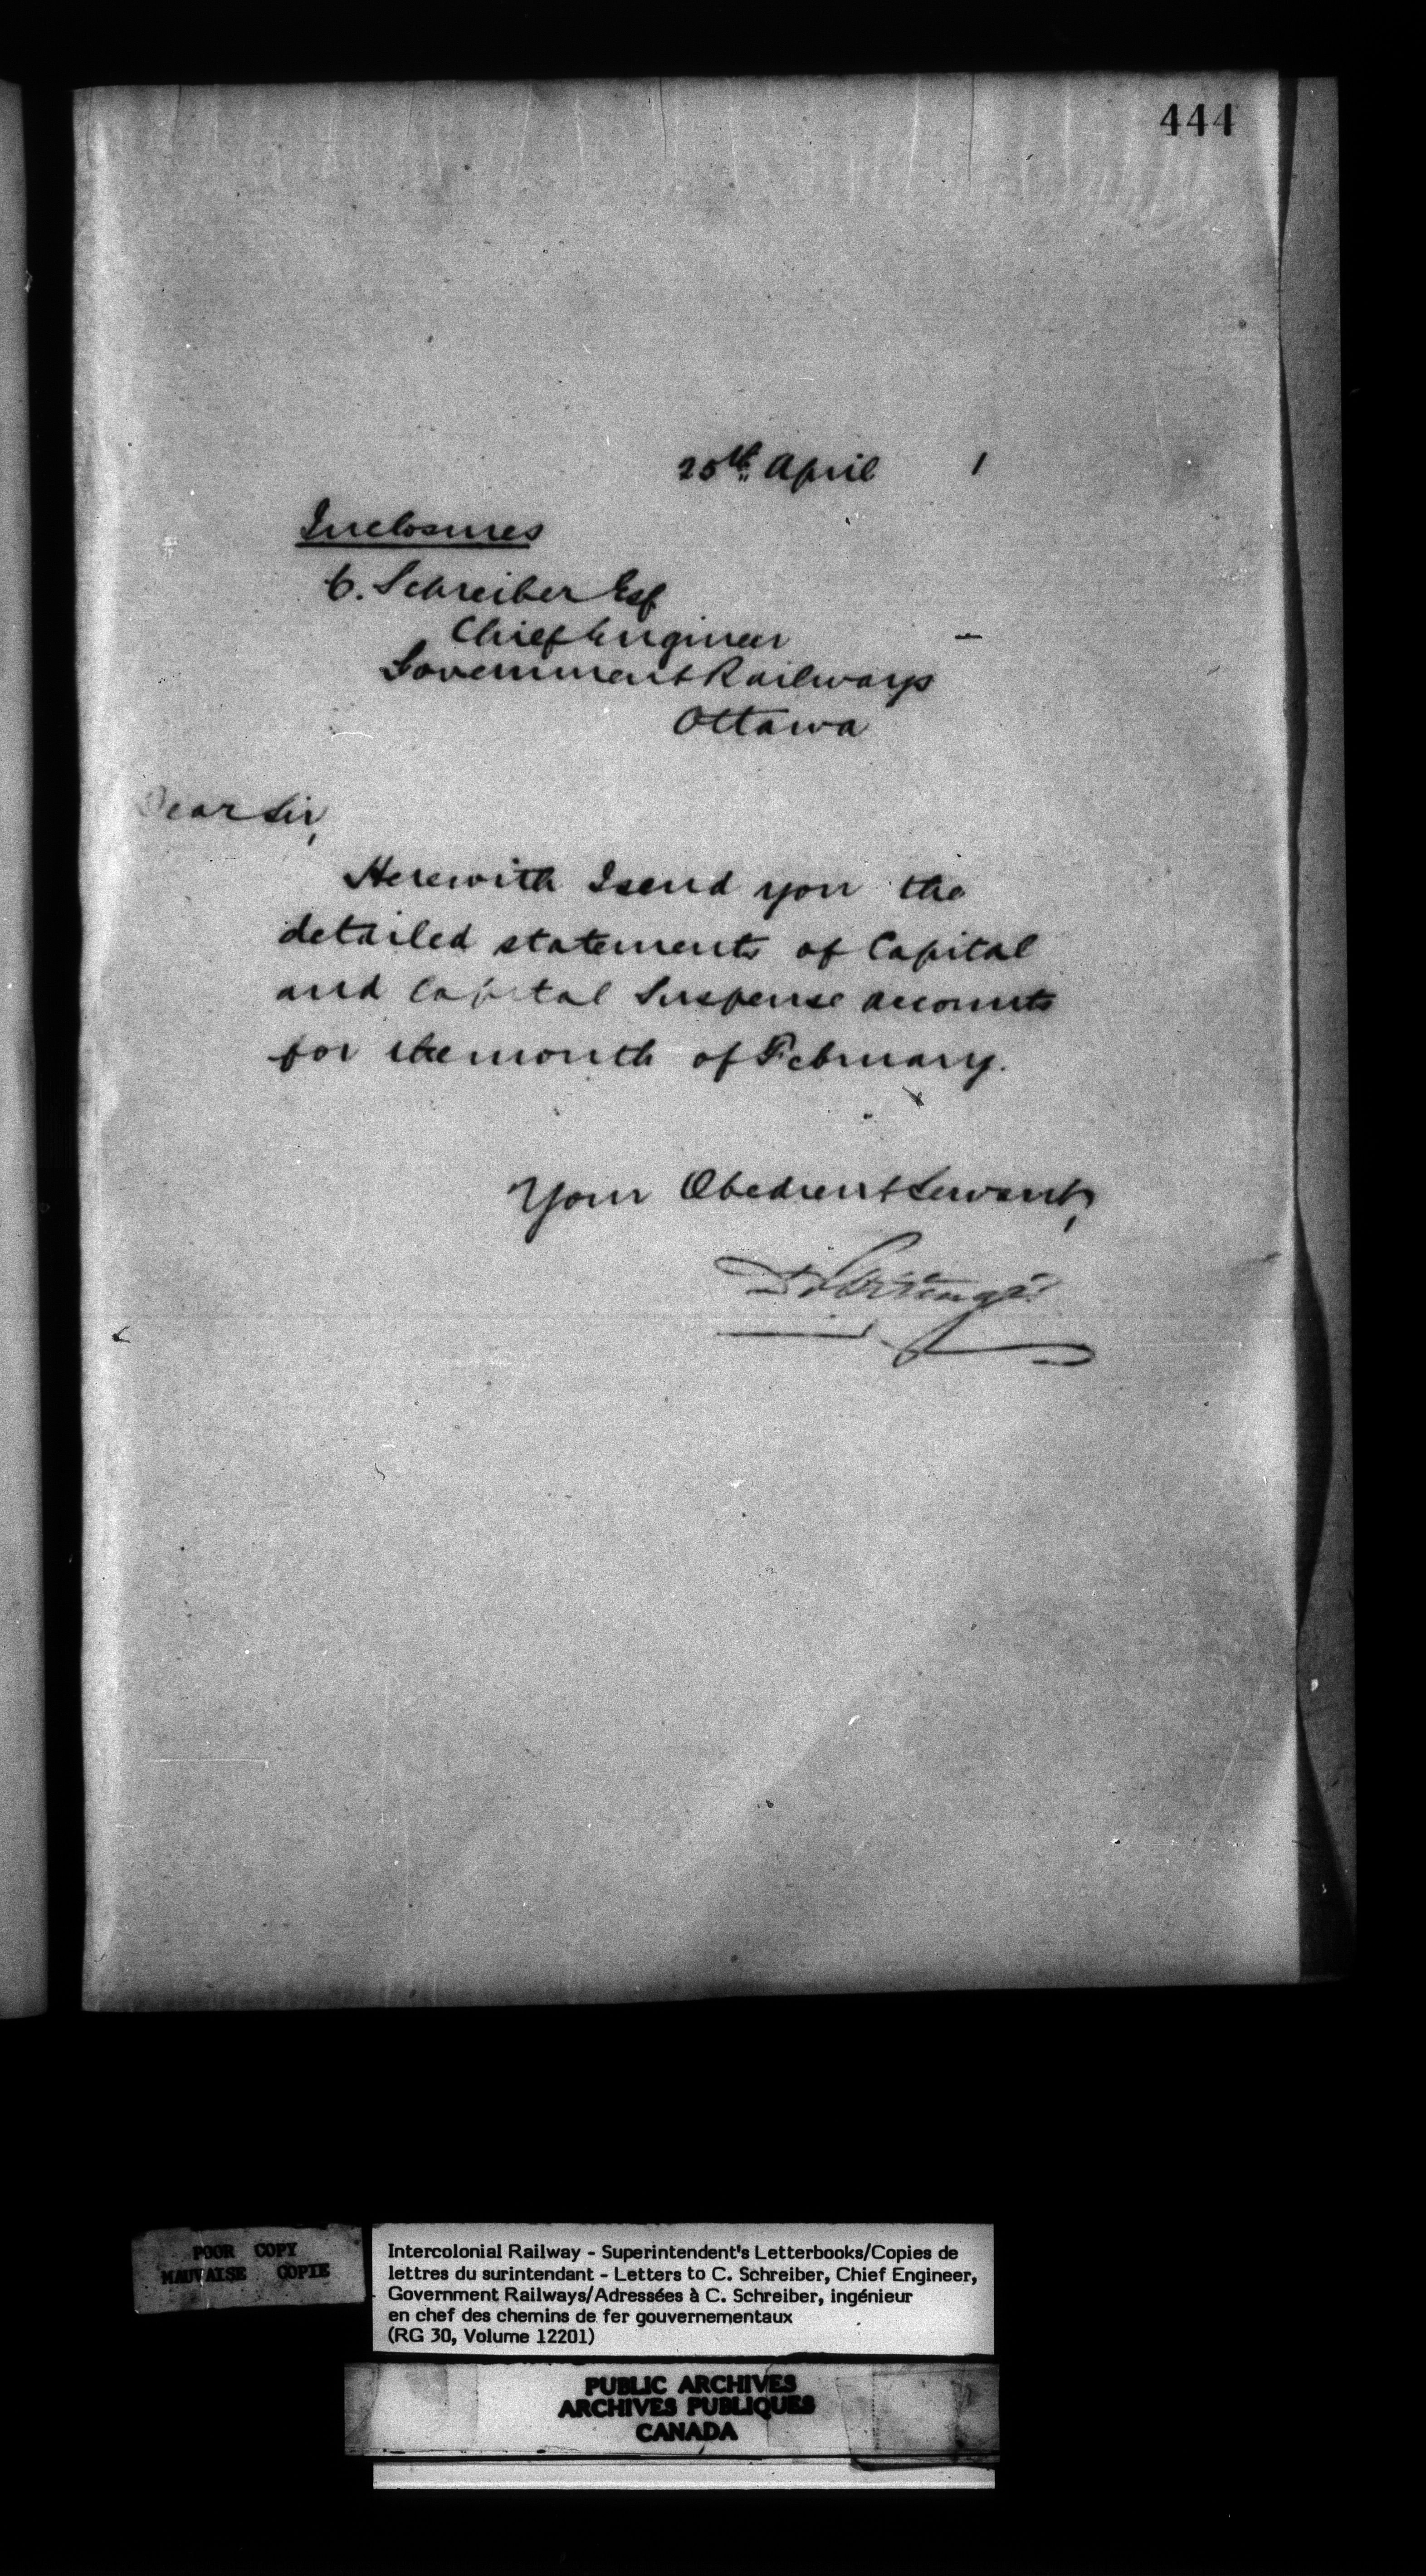 444
25th April 1
Inclosures
C. Schreiber Esq
Chief Engineer
Government Railways
Ottawa
Dear Sir,
Herewith I send you the
detailed statements of Capital
and Capital Suspense accounts
for the month of February.
Your Obedient Servant,
D Pottinger
POOR COPY
MAUVAISE COPIE
Intercolonial Railway - Superintendent's Letterbooks/Copies de
lettres du surintendant - Letters to C. Schreiber, Chief Engineer,
Government Railways/Adressées à C. Schreiber, ingénieur
en chef des chemins de fer gouvernementaux
(RG 30, Volume 12201)
PUBLIC ARCHIVES
ARCHIVES PUBLIQUES
CANADA